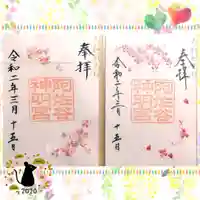 奉拝
令和二年三月十五日
阿佐谷
神明宮
奉拝
令和二年三月十五日
阿佐谷
神明宮